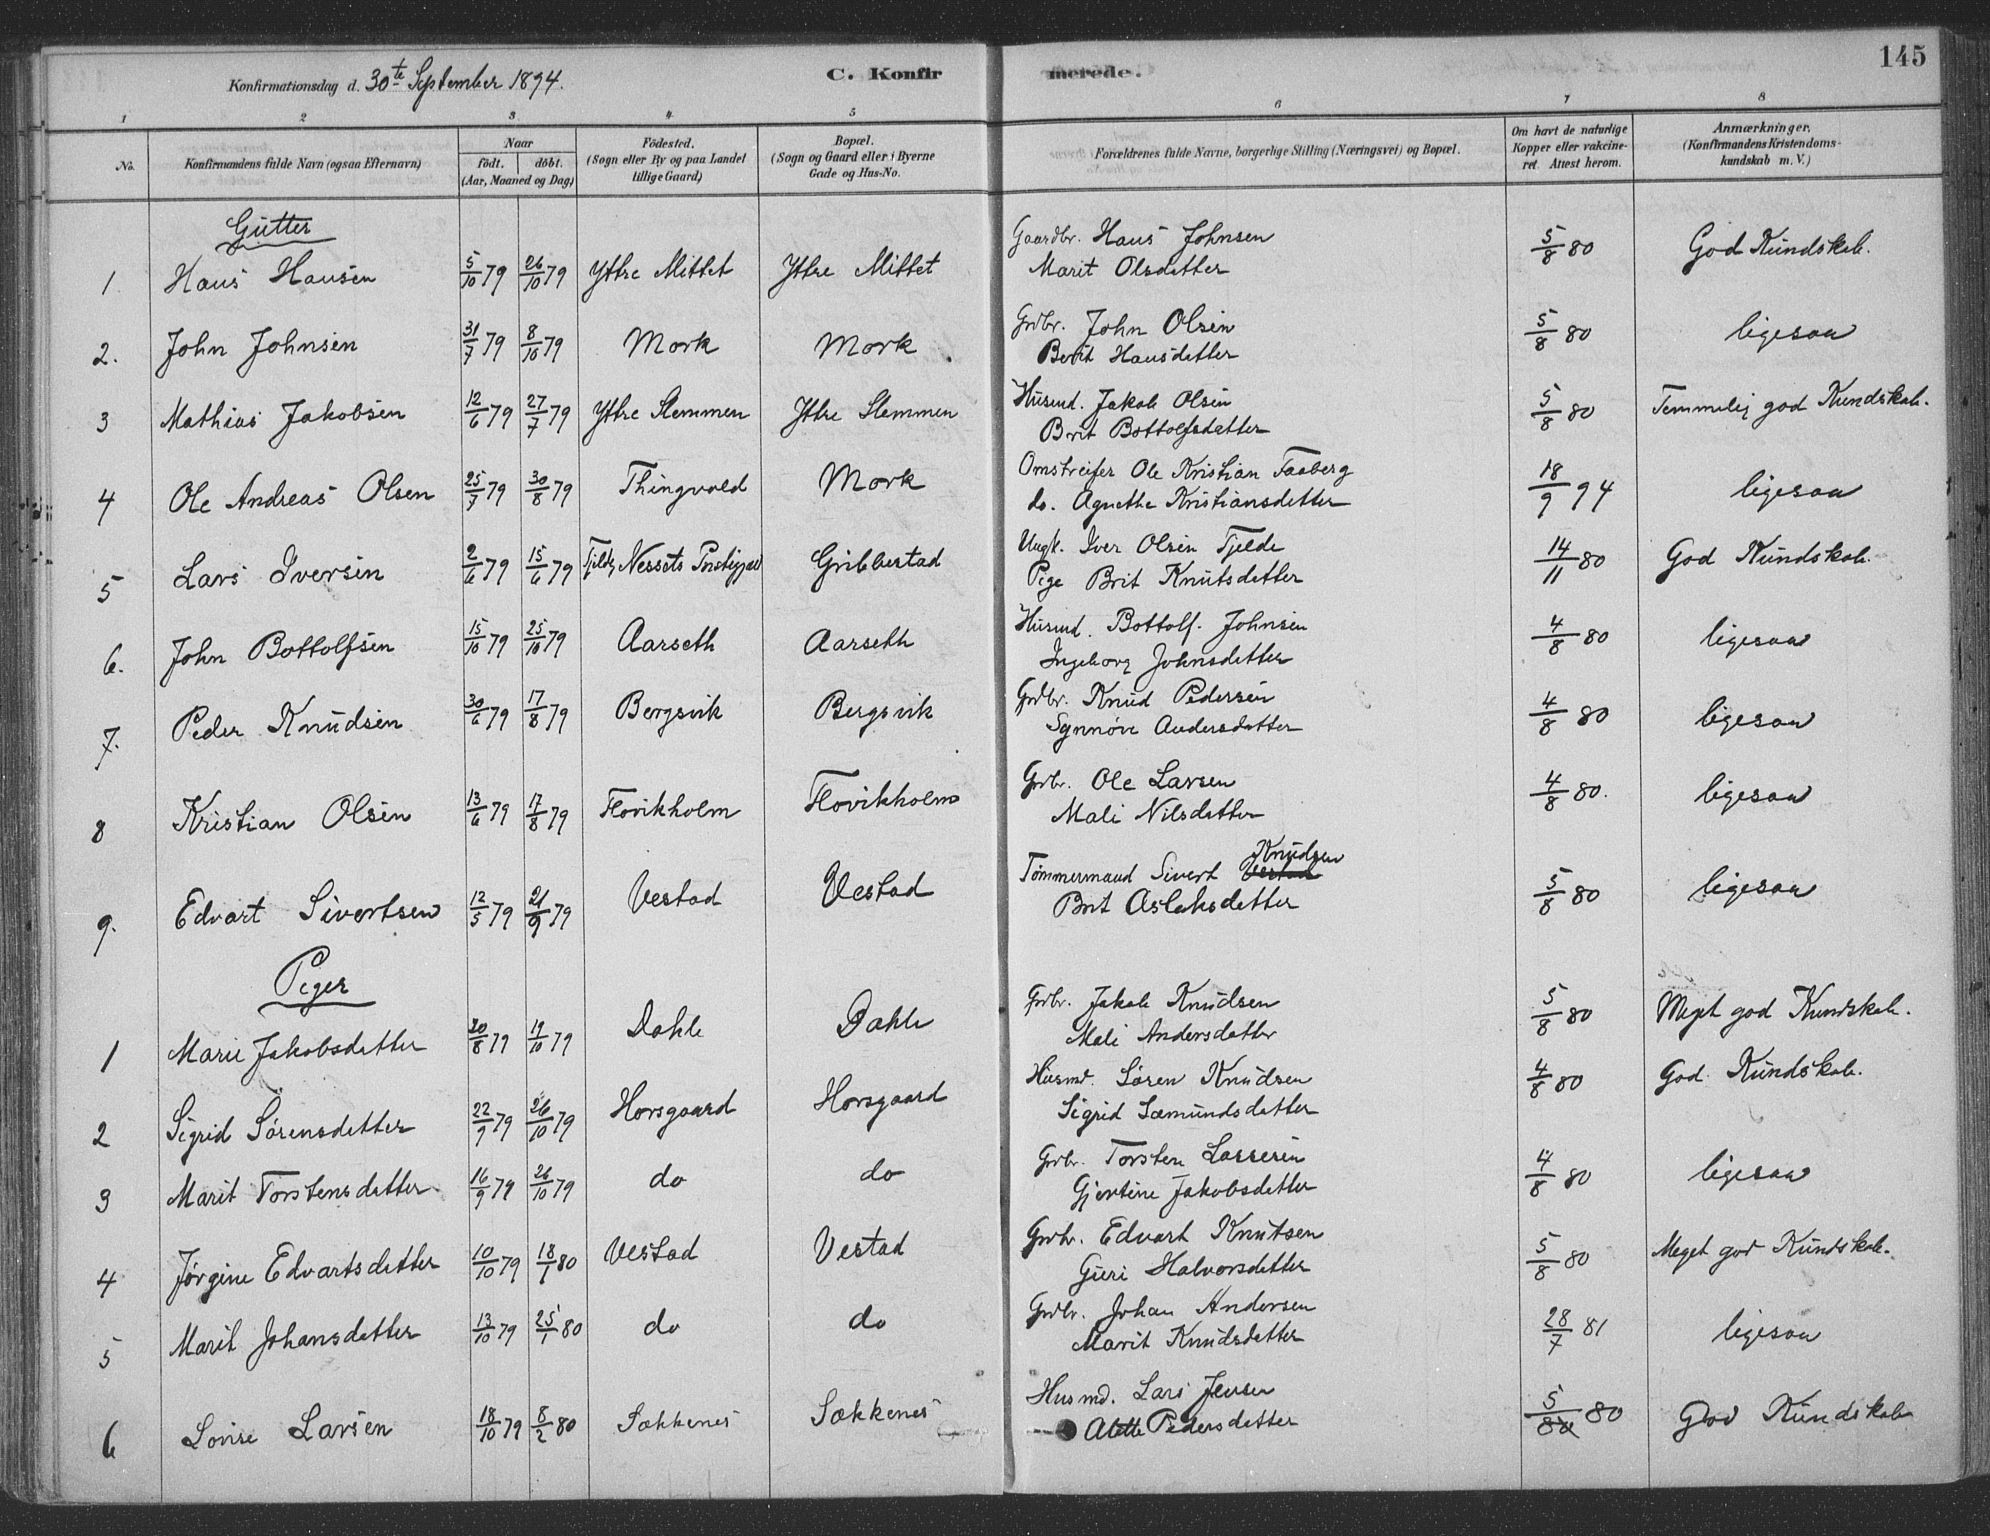 145
Konfirmationsdag d. 30te September 1894.
C. Konfirmerede.
1 2 3 4 5 6 7 8
No.
Konfirmandens fulde Navn (ogsaa Efternavn)
Naar
födt. döbt.
(Aar, Maaned og Dag)
Födested.
(Sogn eller By og paa Landet
tillige Gaard)
Bopæl.
(Sogn og Gaard eller i Byerne
Gade og Hus-No.
Forældrenes fulde Navne, borgerlige Stilling (Næringsvei) og Bopæl.
Om havt de naturlige
Kopper eller vakcine-
ret. Attest herom.
Anmærkninger.
(Konfirmandens Kristendoms-
kundskab m. V.)
Gutter
1 Hans Hansen 5/10 79 26/10 79 Yttre Mittet Yttre Mittet Gaardbr. Hans Johnsen 5/8 80 God Kundskab.
Marit Olsdatter
2. John Johnsen 31/7 79 8/10 79 Mork Mork Grdbr. John Olsen 5/8 80 ligesaa
Berit Hansdatter
3 Mathias Jakobsen 12/6 79 27/7 79 Yttre Slemmen Yttre Slemmen Husmd. Jakob Olsen 5/8 80 Temmelig god Kundskab.
Brit Bottolfsdatter
4 Ole Andreas Olsen 25/7 79 30/8 79 Thingvold Mork Omstreifer Ole Kristian Faaberg 18/9 94 ligesaa
do. Agnethe Kristiansdatter
5 Lars Iversen 2/6 79 15/6 79 Tjelde, Nessets Gribbestad Ungk. Iver Olsen Tjelde 14/11 80 God Kundskab.
Pige Brit Knutsdatter
6. John Bottolfsen 15/10 79 25/10 79 Aarseth Aarseth Husmd. Bottolf. Johnsen 4/8 80 ligesaa
Ingeborg Johnsdatter
7. Peder Knudsen 30/6 79 17/8 79 Bergsvik Bergsvik Grdbr. Knud Pedersen 4/8 80 ligesaa
Synnøve Andersdatter
8 Kristian Olsen 13/6 79 17/8 79 Flovikholm Flovikholm Grbr. Ole Larsen 4/8 80. ligesaa
Mali Nilsdatter
Knudsen
9. Edvart Sivertsen 12/5 79 21/9 79 Vestad Vestad Tömmermand Sivert Vestad 5/8 80 ligesaa
Brit Aslaksdatter
Piger
1 Marie Jakobsdatter 30/8 79 19/10 79 Dahle Dahle Grbr. Jakob Knudsen 5/8 80 Meget god Kundskab.
Mali Andersdatter
2 Sigrid Sörensdatter 22/9 79 26/10 79 Horsgaard Horsgaard Husmd. Sören Knudsen 4/8 80 God Kundskab.
Sigrid Sæmundsdatter
3 Marit Torstensdatter 16/9 79 26/10 79 do do Grbr. Torsten Lassesen 4/8 80 ligesaa
Gjertine Jakobsdatter
4 Jørgine Edvartsdatter 10/10 79 18/1 80 Vestad Vestad Grbr. Edvart Knutsen 5/8 80 Meget god Kundskab.
Guri Halvorsdatter
5 Marit Johansdatter 13/10 79 25/1 80 do do Grdbr. Johan Andersen 28/7 81 ligesaa
Marit Knudsdatter
6 Lovise Larsen 18/10 79 8/2 80 Sækkenes Sækkenes Husmd. Lars Jensen 5/8 80 God Kundskab
Alette Pedersdatter